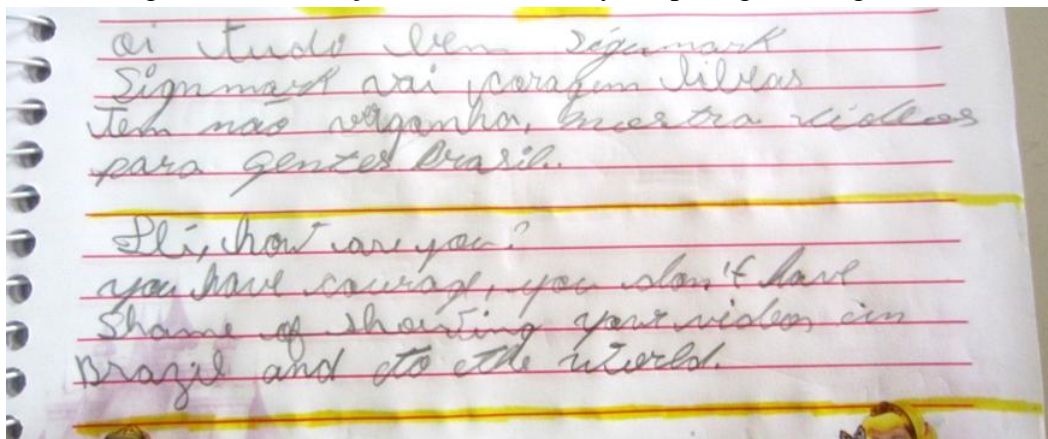 oi tudo bem Signmark
Signmark vai coragem libras
Tem não vergonha, mostra videos
para gentes Brasil.
Hi, how are you?
you have courage, you don't have
Shame of showing your videos in
Brazil and to the world.